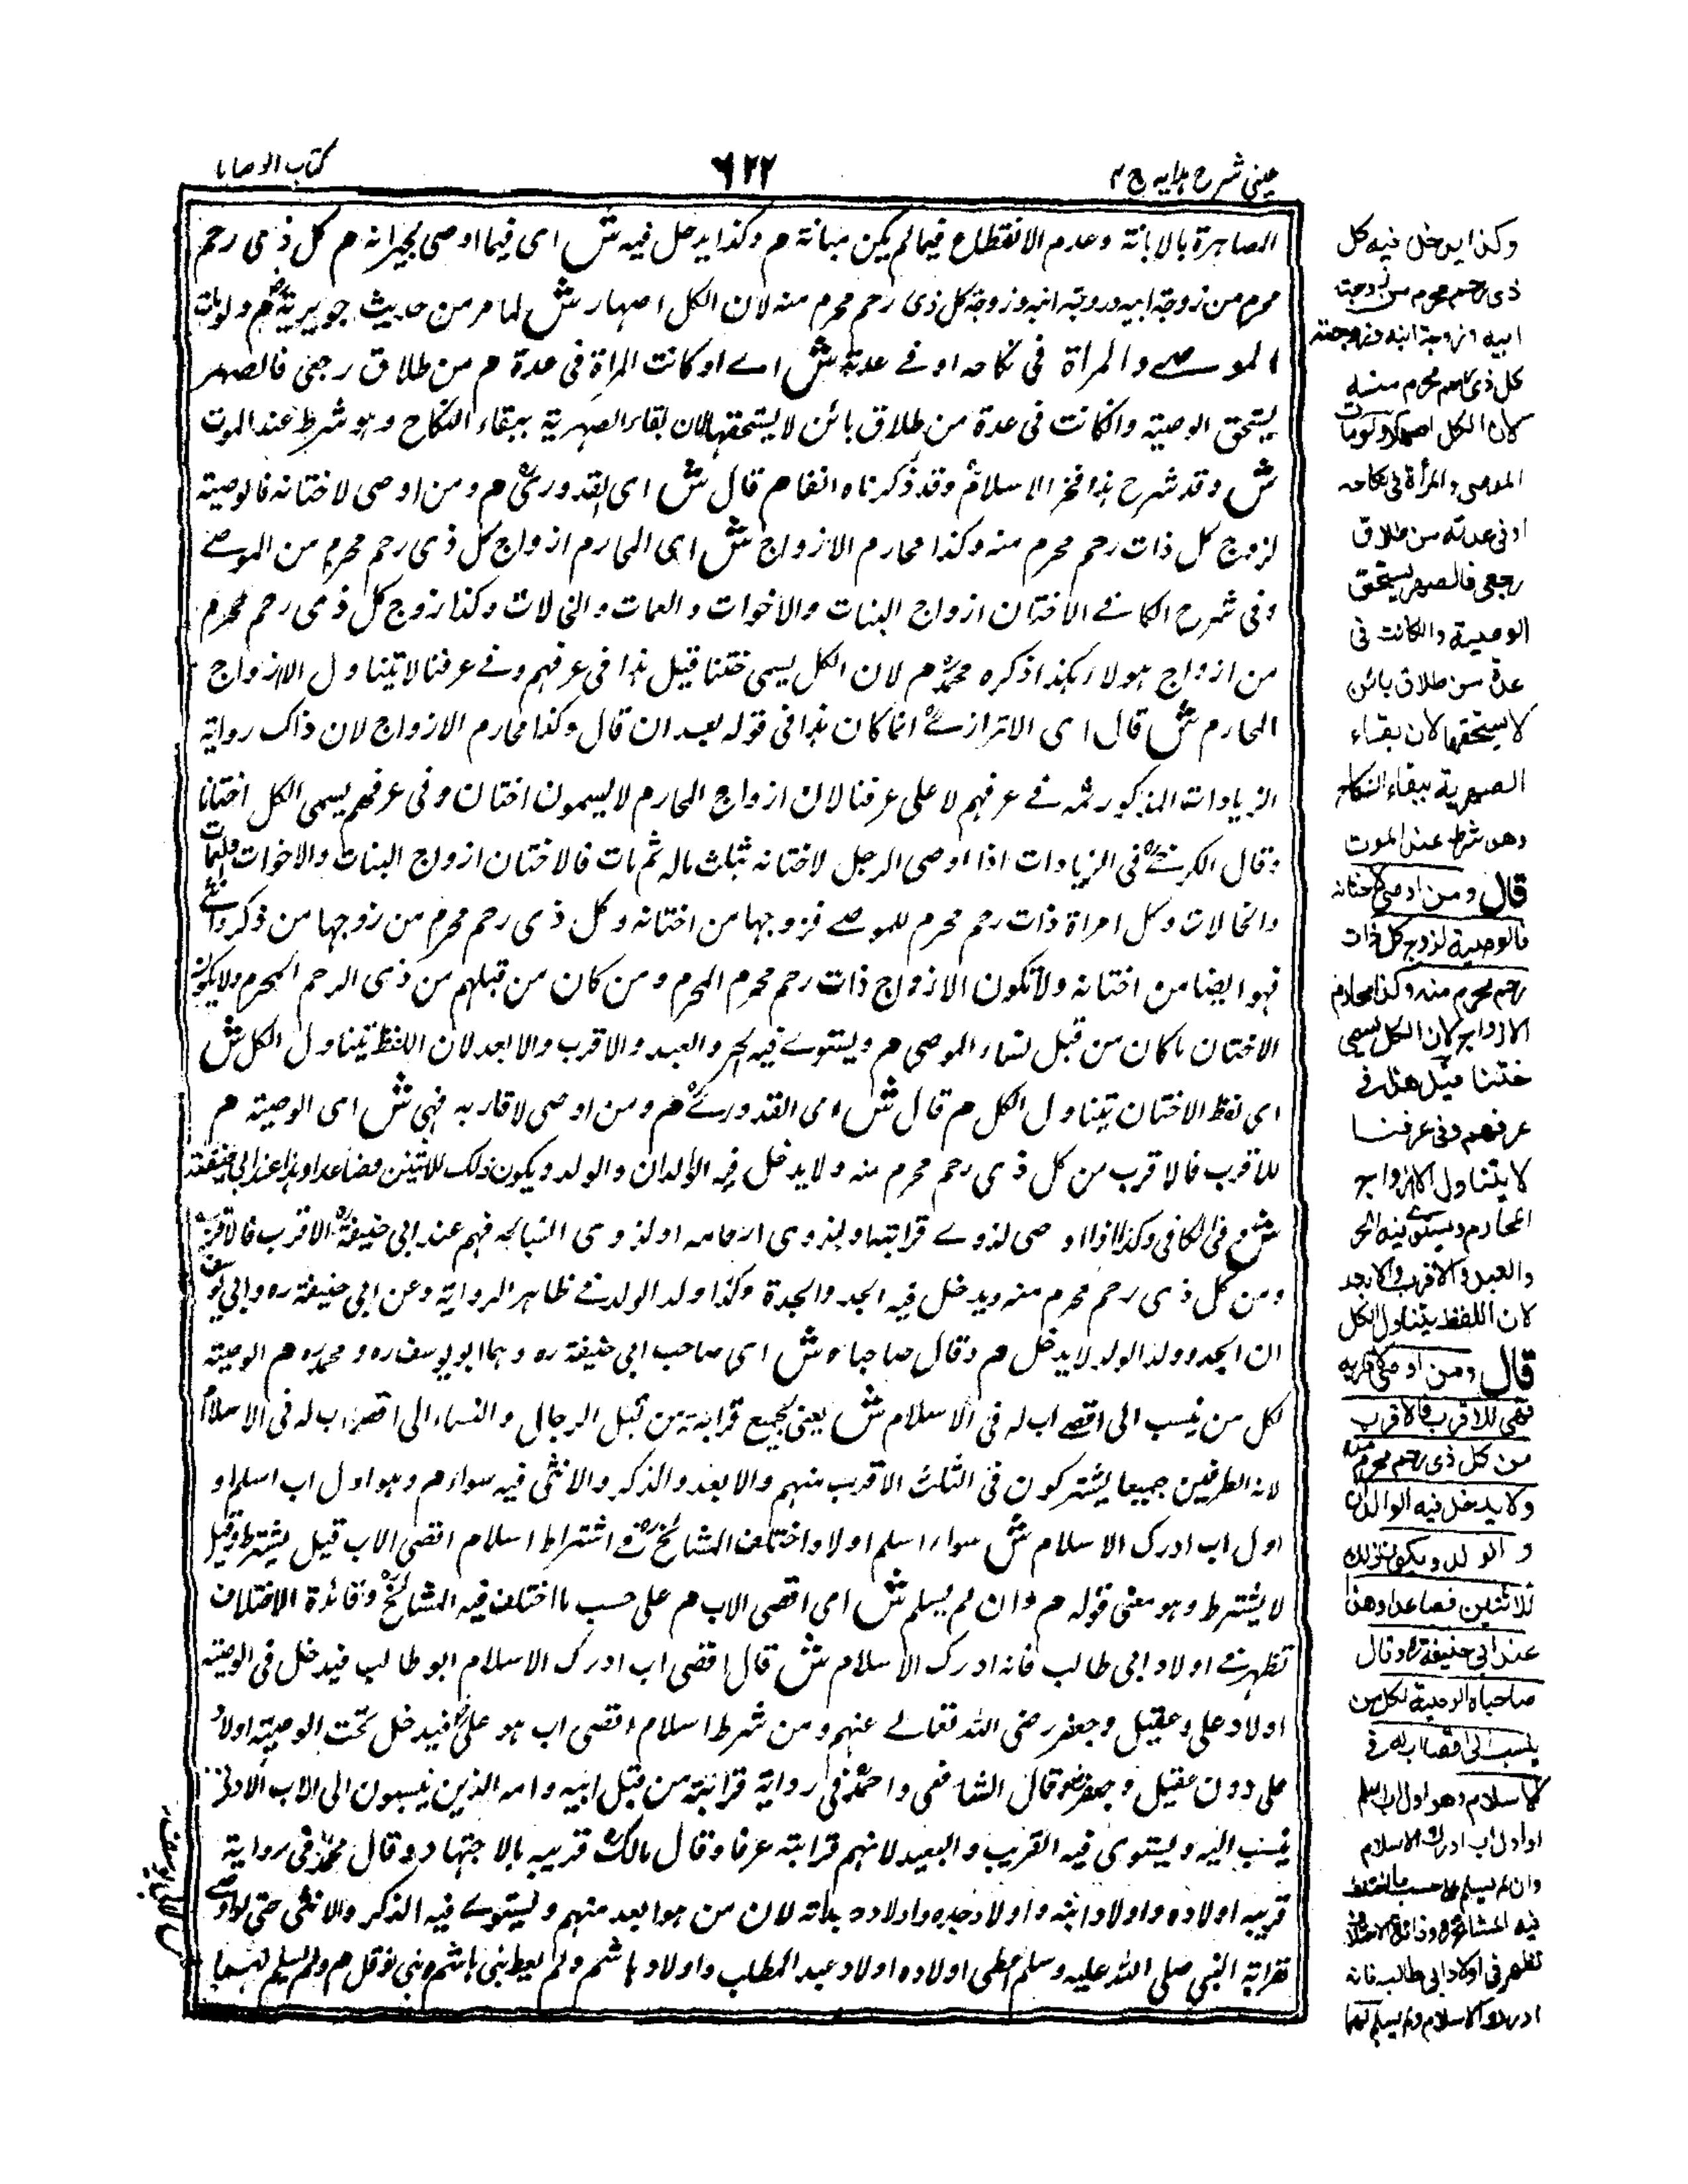 عینی شرح ہدایہ ج ۴
٦٢٢
کتاب الوصایا
المصاہرة بالابانة وعدم الانقطاع فیما لم یکن مبانة م وکذا یدخل فیہ ش ای فیما اوصی م کل ذی رحم
محرم من زوجة ابیہ وزوجة ابنہ وزوجة کل ذی رحم محرم منہ لان الکل اصہار ش لما مر من حدیث جویریة م ولو مات
الموصے والمراة فی نکاحہ او فے عدتہ ش اے او کانت المراة فی عدة م من طلاق رجعی فالصہر
یستحق الوصیة وانکانت فی عدة من طلاق بائن لا یستحقہا لان بقاء الصہریة ببقاء النکاح وہو شرط عند الموت
ش وقد شرح ہذا فخر الاسلام وقد ذکرناہ انفا م قال ش ای القدوری م ومن اوصی لاختانہ فالوصیة
لزوج کل ذات رحم محرم منہ وکذا محارم الازواج ش ای المحارم ازواج کل ذی رحم محرم من الموصے
وفی شرح الکافے الاختان ازواج البنات والاخوات والعمات والخالات وکذا زوج کل ذی رحم محرم
من ازواج ہولاء ہکذا ذکرہ محمد م لان الکل یسمی ختنا قیل ہذا فی عرفہم وفے عرفنا لا یتناول الازواج
المحارم ش قال ای الاترازے انما کان ہذا فی قولہ بعد ان قال وکذا محارم الازواج لان ذاک روایة
الزیادات المذکور ثمہ فے عرفہم لا علی عرفنا لان ازواج المحارم لا یسمون اختان وفی عرفہم یسمی الکل اختانا
وقال الکرخے فی الزیادات اذا اوصی الرجل لاختانہ بثلث مالہ ثم مات فالاختان ازواج البنات والاخوات والعمات
والخالات وکل امراة ذات رحم محرم للموصے فزوجہا من اختانہ وکل ذی رحم محرم من زوجہا من ذکر وانثے
فہو ایضا من اختانہ ولا تکون الازواج ذات رحم محرم المحرم ومن کان من قبلہم من ذی الرحم المحرم ولا یکون
الاختان ماکان من قبل نساء الموصی م ویستوے فیہ الحر والعبد والاقرب والابعد لان اللفظ یتناول الکل ش
ای لفظ الاختان یتناول الکل م قال ش ای القدورے م ومن اوصی لاقاربہ فہی ش ای الوصیة م
للاقرب فالاقرب من کل ذی رحم محرم منہ ولا یدخل فیہ الوالدان والولد ویکون ذلک للاثنین فصاعدا وہذا عند ابی حنیفة
ش وفی الکافی وکذا اذا اوصی لذوے قرابتہ او لذوی ارحامہ او لذوی انسابہ فہم عند ابی حنیفة الاقرب فالاقرب
ومن کل ذی رحم محرم منہ ویدخل فیہ الجد والجدة وکذا ولد الولد فے ظاہر الروایة وعن ابی حنیفة رہ وابی یوسف
ان الجد وولد الولد لا یدخل م وقال صاحباہ ش ای صاحب ابی حنیفة رہ وہما ابو یوسف رہ ومحمد رہ م الوصیة
لکل من ینسب الی اقصے اب لہ فی الاسلام ش یعنی لجمیع قرابتہ من قبل الرجال والنساء الی اقصے اب لہ فی الاسلام
لانہ الطرفین جمیعا یشترکون فی الثلث الاقرب منہم والابعد والذکر والانثی فیہ سواء م وہو اول اب اسلم او
اول اب ادرک الاسلام ش سواء اسلم او لا واختلف المشائخ فے اشتراط اسلام اقصی الاب قیل یشترط وقیل
لا یشترط وہو معنی قولہ م وان لم یسلم ش ای اقصی الاب م علی حسب ما اختلف فیہ المشائخ وفائدة الاختلاف
تظہر فے اولاد ابی طالب فانہ ادرک الاسلام ش قال اقصی اب ادرک الاسلام ابو طالب فیدخل فی الوصیة
اولاد علی وعقیل وجعفر رضی اللہ تعالے عنہم ومن شرط اسلام اقصی اب ہو علی فیدخل تحت الوصیة اولاد
علی دون عقیل وجعفر وقال الشافعی واحمد فی روایة قرابتہ من قبل ابیہ وامہ الذین ینسبون الی الاب الادنی
ینسب الیہ ویستوی فیہ القریب والبعید لانہم قرابتہ عرفا وقال مالک قریبہ بالاجتہاد وقال محمد فی روایة
قریبہ اولادہ واولاد ابیہ واولاد جدہ واولادہ لان من ہو ابعد منہم ویستوے فیہ الذکر والانثی حتی لو اوصے
لقرابة النبی صلی اللہ علیہ وسلم اعطی اولادہ اولاد عبد المطلب واولاد ہاشم ولم یعط بنی ہاشم وبنی نوفل م ولم یسلم لہما
وکذا یدخل فیہ کل
ذی رحم محرم من زوجة
ابیہ وزوجة ابنہ وزوجتہ
کل ذی رحم محرم منہ
لان الکل اصہار ولو مات
الموصی والمرأة فی نکاحہ
او فی عدتہ من طلاق
رجعی فالصہر یستحق
الوصیة وانکانت فی
عدة من طلاق بائن
لا یستحقہا لان بقاء
الصہریة ببقاء النکاح
وہو شرط عند الموت
قال ومن اوصی لاختانہ
فالوصیة لزوج کل ذات
رحم محرم منہ وکذا محارم
الازواج لان الکل یسمی
ختنا قیل ہذا فی
عرفہم وفی عرفنا
لا یتناول الازواج
المحارم ویستوی فیہ الحر
والعبد والاقرب والابعد
لان اللفظ یتناول الکل
قال ومن اوصی لاقاربہ
فہی للاقرب فالاقرب
من کل ذی رحم محرم منہ
ولا یدخل فیہ الوالدان
والولد ویکون ذلک
للاثنین فصاعدا وہذا
عند ابی حنیفة وقال
صاحباہ الوصیة لکل من
ینسب الی اقصی اب لہ فی
الاسلام وہو اول اب اسلم
او اول اب ادرک الاسلام
وان لم یسلم علی حسب ما اختلف
فیہ المشائخ وفائدة الاختلاف
تظہر فی اولاد ابی طالب فانہ
ادرک الاسلام ولم یسلم لہما